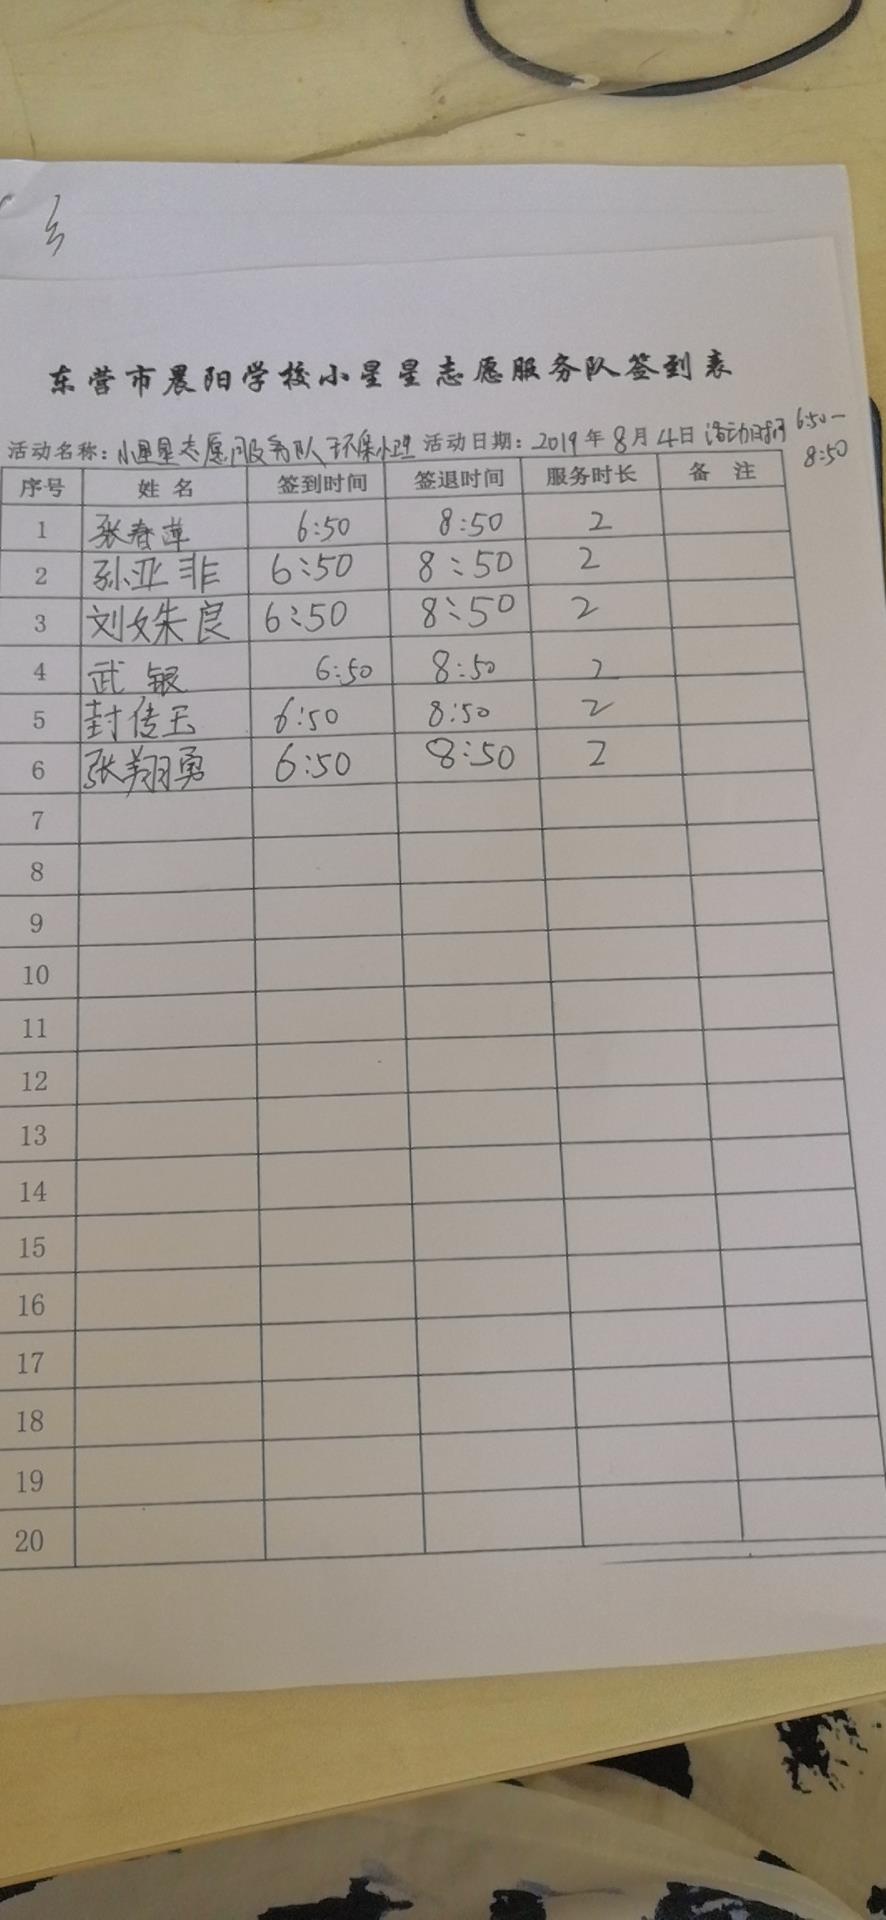 东营市晨阳学校小星星志愿服务队签到表
活动名称：小星星志愿服务队环保小 活动日期：2019年8月4日 活动时间 6:50—
8:50
序号 姓名 签到时间 签退时间 服务时长 备注
1 张春萍 6:50 8:50 2
2 孙亚非 6:50 8:50 2
3 刘姝良 6:50 8:50 2
4 武银 6:50 8:50 2
5 封传玉 6:50 8:50 2
6 张翔勇 6:50 8:50 2
7
8
9
10
11
12
13
14
15
16
17
18
19
20